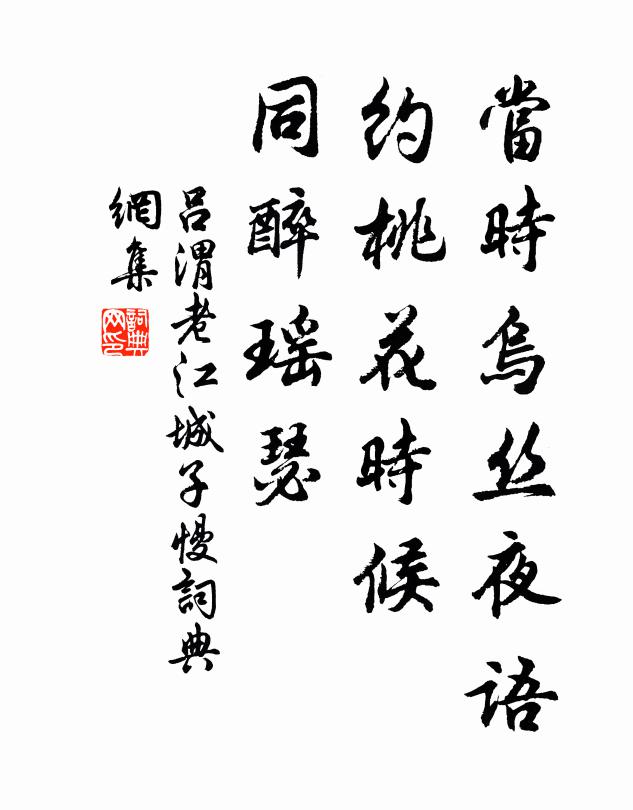 當時烏丝夜語
約桃花時候
同醉瑶瑟
吕渭老江城子慢詞典
網集
詞典
网印